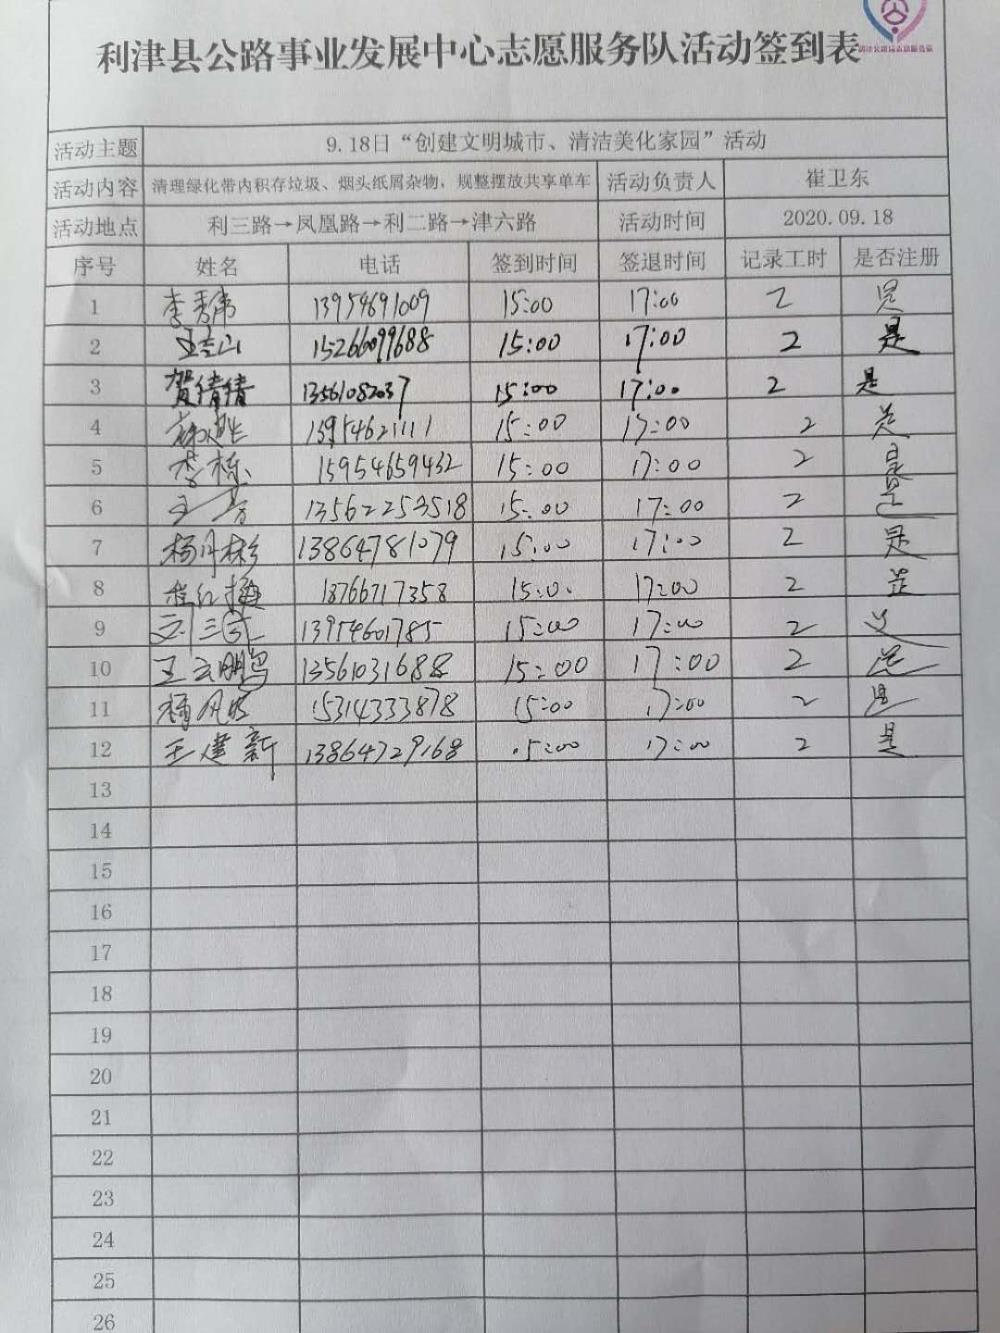 利津县公路事业发展中心志愿服务队活动签到表
活动主题 9.18日“创建文明城市、清洁美化家园”活动
活动内容 清理绿化带内积存垃圾、烟头纸屑杂物，规整摆放共享单车 活动负责人 崔卫东
活动地点 利三路→凤凰路→利二路→津六路 活动时间 2020.09.18
序号 姓名 电话 签到时间 签退时间 记录工时 是否注册
1 李秀伟 13954691009 15:00 17:00 2 是
2 15266099688 15:00 17:00 2 是
3 贺倩倩 13561082037 15:00 17:00 2 是
4 13954621111 15:00 17:00 2 是
5 李栋 15954659432 15:00 17:00 2 是
6 王芳 13562253518 15:00 17:00 2 是
7 杨丹彬 13864781079 15:00 17:00 2 是
8 程红梅 18766717358 15:00 17:00 2 是
9 刘三 13954601785 15:00 17:00 2
10 王云鹏 13561031688 15:00 17:00 2 是
11 15314333878 15:00 17:00 2 是
12 王建新 13864729168 15:00 17:00 2 是
13
14
15
16
17
18
19
20
21
22
23
24
25
26